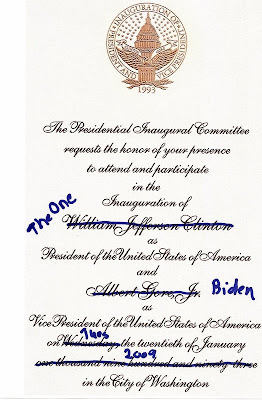 INAUGURATION OF PRESIDENT AND VICE PRESIDENT
1993
The Presidential Inaugural Committee
requests the honor of your presence
to attend and participate
in the
Inauguration of
The One
William Jefferson Clinton
as
President of the United States of America
and
Albert Gore, Jr. Biden
as
Vice President of the United States of America
Tues
on Wednesday, the twentieth of January
2009
one thousand nine hundred and ninety-three
in the City of Washington